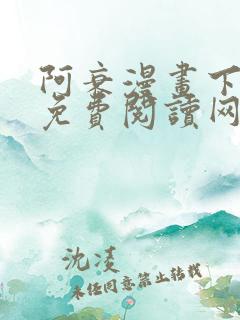 阿衰漫畫下
免費閱讀网
沈凌
未经同意禁止转载